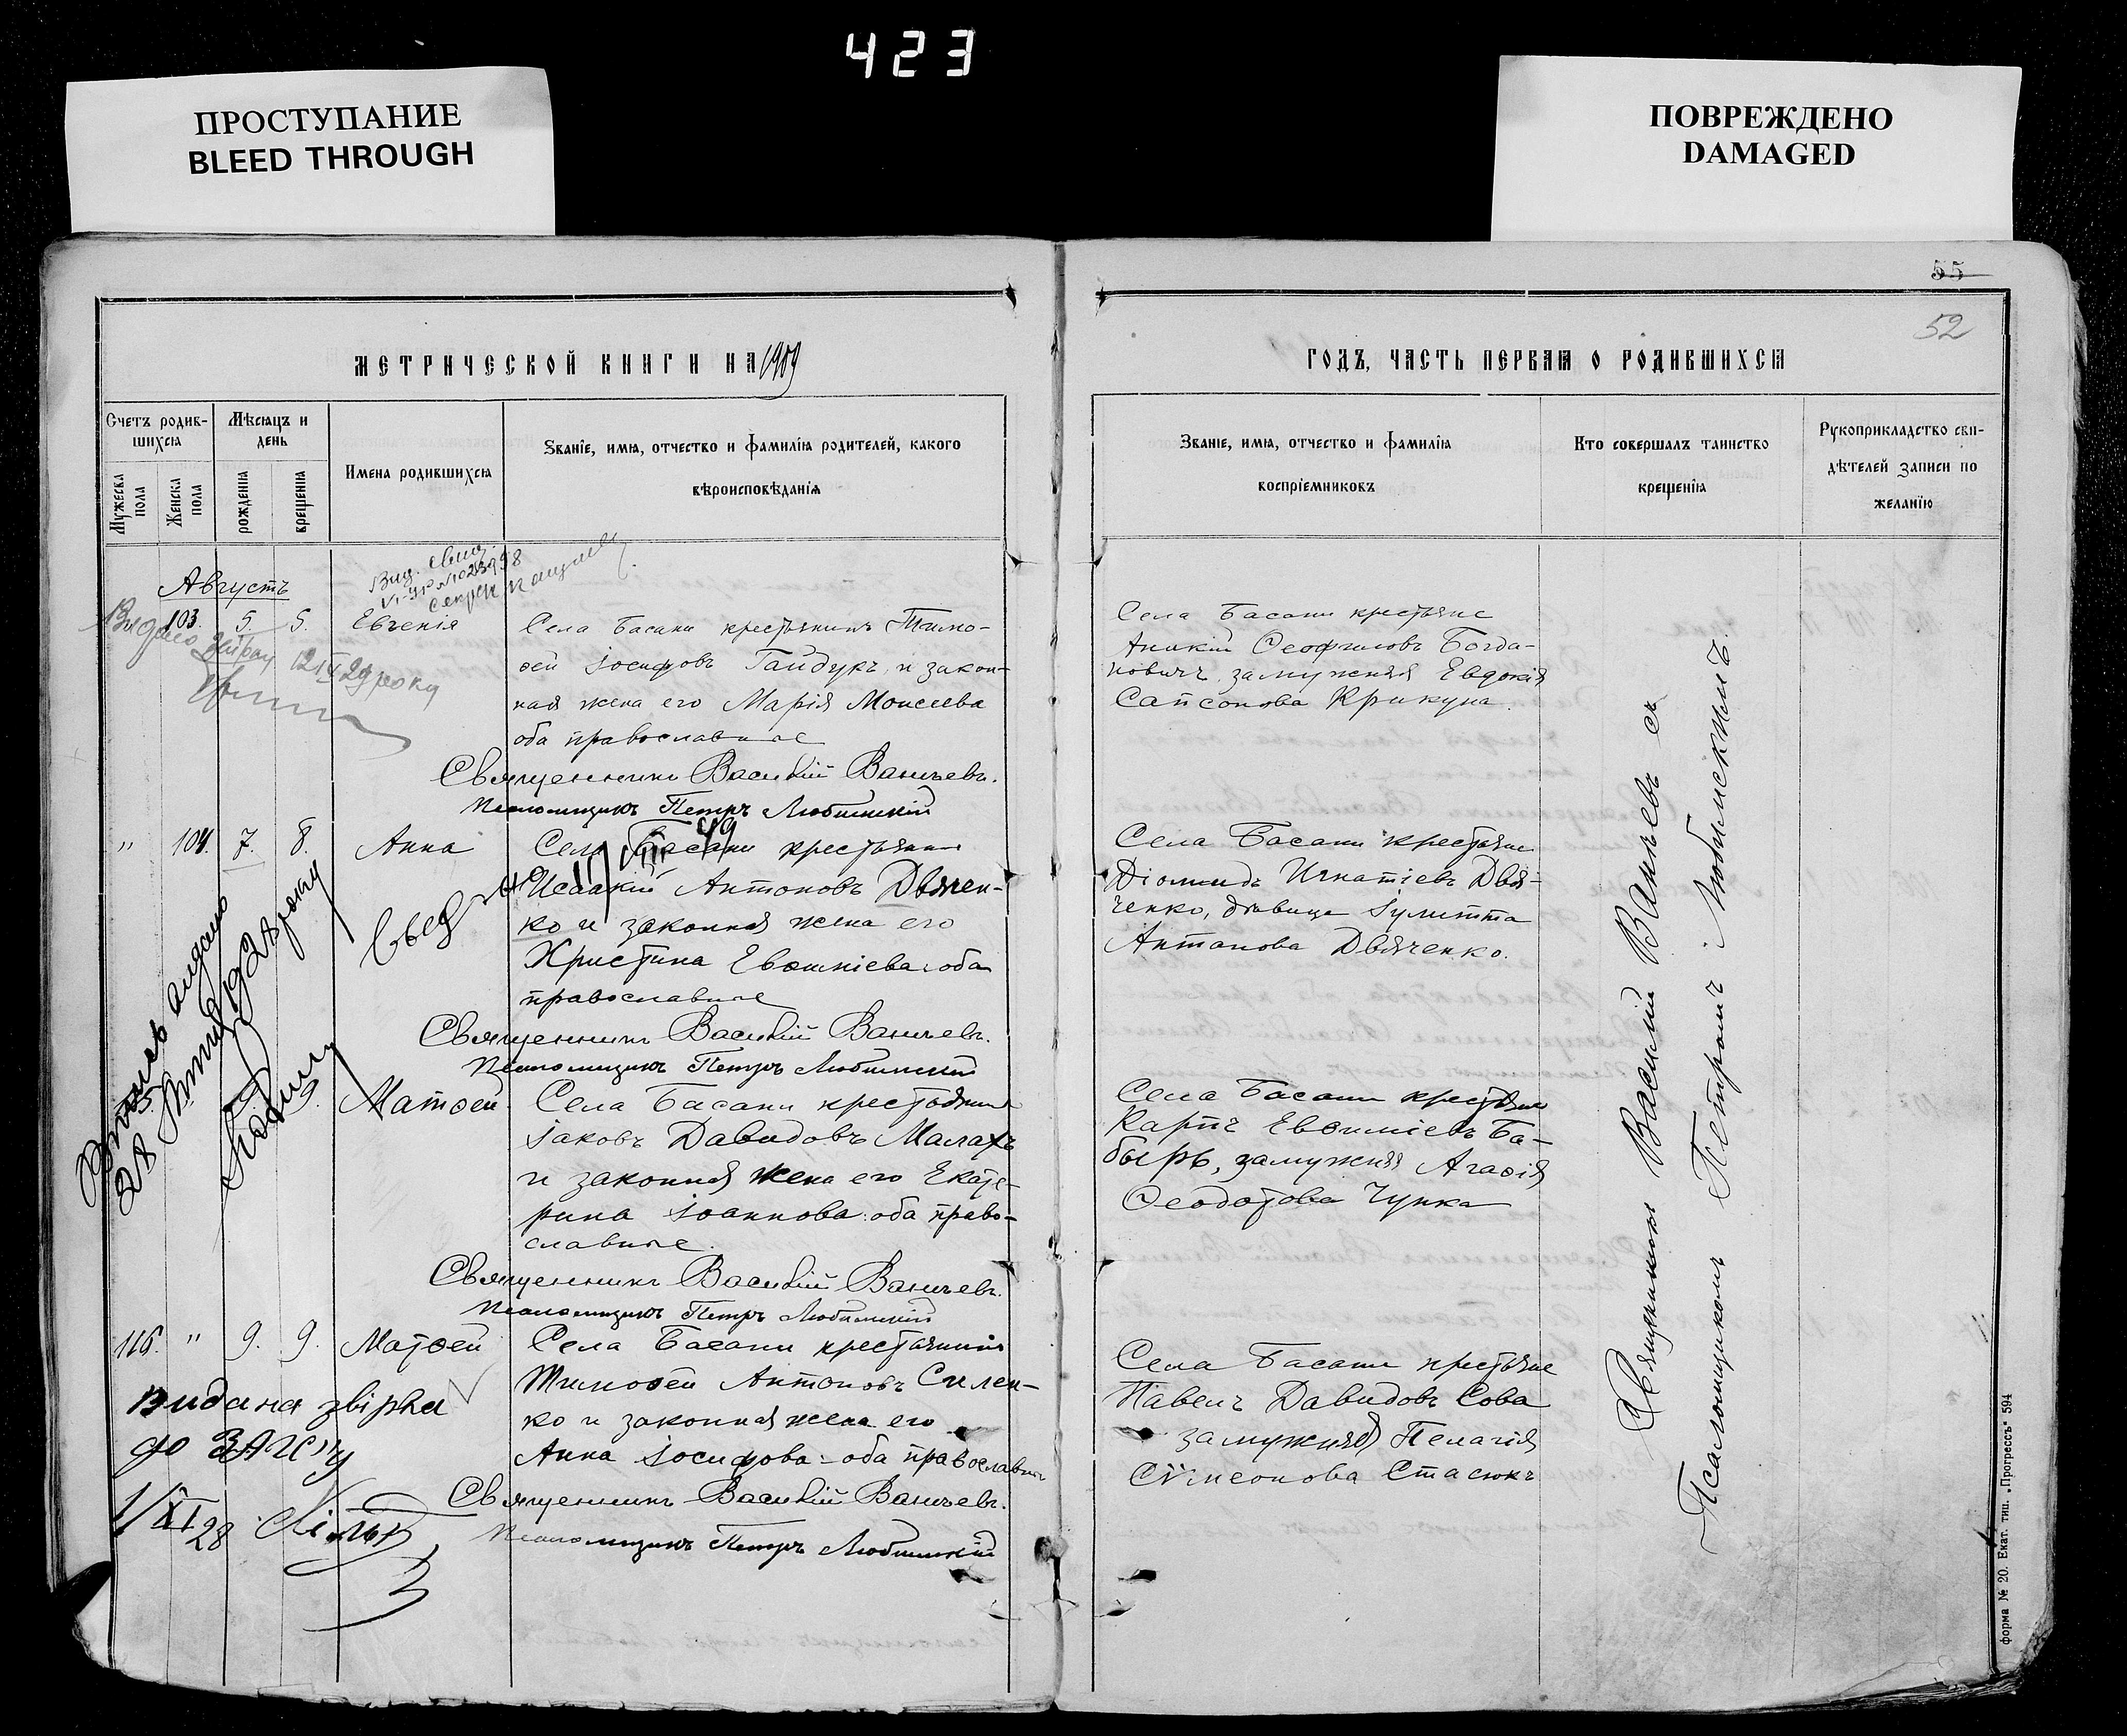 423
ПРОСТУПАНИЕ
BLEED THROUGH
ПОВРЕЖДЕНО
DAMAGED
55
52
МЕТРИЧЕСКОЙ КНИГИ НА 1909
ГОДЪ, ЧАСТЬ ПЕРВАЯ О РОДИВШИХСЯ
Счетъ родив-
шихся
Мужеска пола
Женска пола
Мѣсяцъ и
день
рожденія
крещенія
Имена родившихся
Званіе, имя, отчество и фамилія родителей, какого
вѣроисповѣданія
Званіе, имя, отчество и фамилія
воспріемниковъ
Кто совершалъ таинство
крещенія
Рукоприкладство сви-
дѣтелей записи по
желанію
Августъ
103. 5. 5. Евгенія
Села Басани крестьянинъ Тимо-
ѳей Іосифовъ Гайдукъ, и закон-
ная жена его Марія Моисеева
оба православные
Священникъ Василій Ваничевъ.
Псаломщикъ Петръ Любимскій
Села Басани крестьяне
Аникій Ѳеофиловъ Богда-
новичъ, замужняя Евдокія
Сапсонова Крикуна.
Видано 12 29 року
" 104. 7. 8. Анна
Села Басани крестьянинъ
Исаакій Антоновъ Двячен-
ко и законная жена его
Христина Евѳиміева: оба
православные
Священникъ Василій Ваничевъ.
Псаломщикъ Петръ Любимскій
Села Басани крестьяне
Діомидъ Игнатіевъ Двя-
ченко, дѣвица Іулитта
Антонова Двяченко.
VIII 49
видано
28 1928 року
9. Матѳей
Села Басани крестьянинъ
Іаковъ Давидовъ Малахъ
и законная жена его Екате-
рина Іоаннова: оба право-
славные.
Священникъ Василій Ваничевъ.
Псаломщикъ Петръ Любимскій
Села Басани крестьяне
Карпъ Евѳиміевъ Ба-
бырь, замужняя Агаѳія
Ѳеодотова Чупка
116. " 9. 9. Матѳей
Села Басани крестьянинъ
Тимоѳей Антоновъ Силен-
ко и законная жена его
Анна Іосифова: оба православные
Священникъ Василій Ваничевъ.
Псаломщикъ Петръ Любимскій
Села Басани крестьяне
Павелъ Давидовъ Сова
замужняя Пелагія
Сѵмеонова Стасюкъ
видана
до ЗАГСу
1/XI 28
Священникъ Василій Ваничевъ съ
Псаломщикомъ Петромъ Любимскимъ.
форма № 20. Екат. тип. „Прогрессъ“ 594